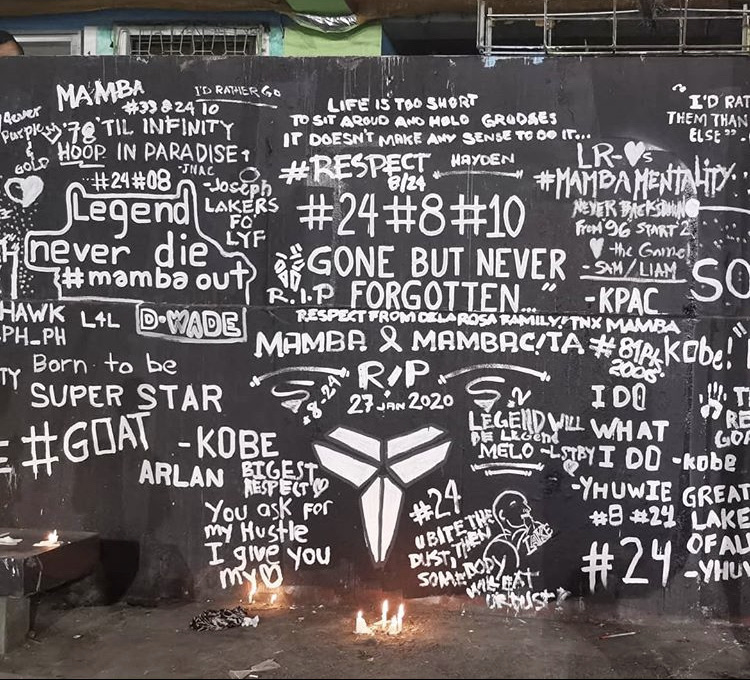 MAMBA
#33 8 24 10
I'D RATHER GO
4ever
Purple
GOLD
'78 'TIL INFINITY
HOOP IN PARADISE!
-JNAC
#24#08
Legend
never die
#mamba out
-Joseph
LAKERS
FO
LYF
LIFE IS TOO SHORT
TO SIT AROUD AND HOLD GRUDGES
IT DOESN'T MAKE ANY SENSE TO DO IT...
#RESPECT
8/24
HAYDEN
#24#8#10
GONE BUT NEVER
FORGOTTEN..."
R.I.P
RESPECT FROM DELAROSA FAMILY! TNX MAMBA
MAMBA & MAMBACITA
LR-♥s
#MAMBAMENTALITY
NEVER BACKSDOWN
FROM 96 START 2
♥ the Game
- SAM/LIAM
-KPAC
"I'D RAT
THEM THAN
ELSE"
SO
HAWK
PH_PH
L4L
D-WADE
Born to be
SUPER STAR
TY
#GOAT
-KOBE
ARLAN
BIGEST
RESPECT♡
You ask for
my Hustle
I give you
my♡
R/P
8-24
27 JAN 2020
#81Pts
2006
Kobe!"
LEGEND WILL
BE LEGEND
MELO
-LSTBY
I DO
WHAT
I DO
-kobe
-YHUWIE
#8 #24
#24
#24
U BITE THE
DUST, THEN
SOMEBODY
WILL EAT
UR DUST!
TH
RE
GOA
GREAT
LAKE
OF AL
-YHUV